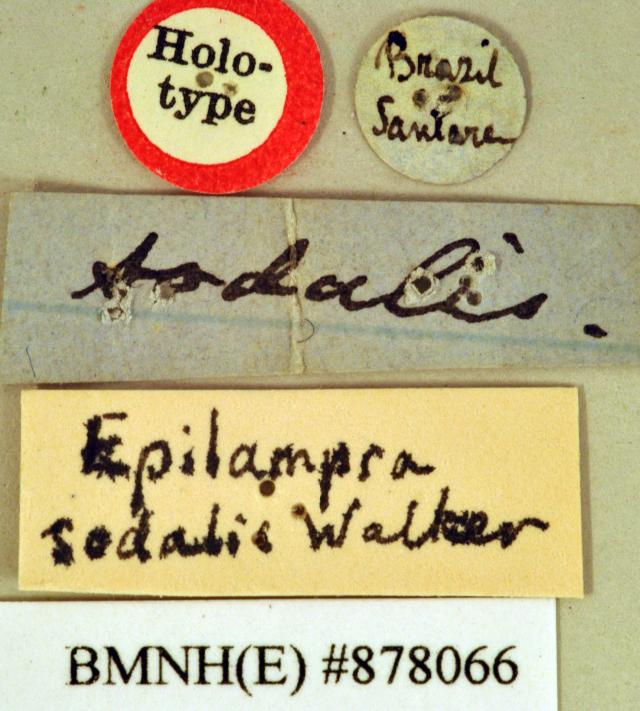 Holo-
type
Brazil
Santare
sodalis.
Epilampra
sodalis Walker
BMNH(E) #878066